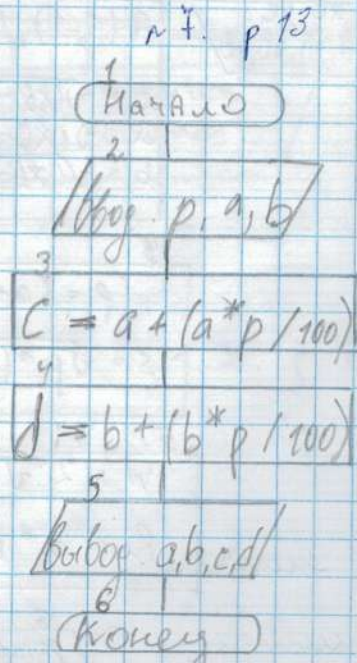 № 7. р 13
1
Начало
2
Ввод p, a, b
3
C = a + (a * p / 100)
4
d = b + (b * p / 100)
5
Вывод a, b, c, d
6
Конец